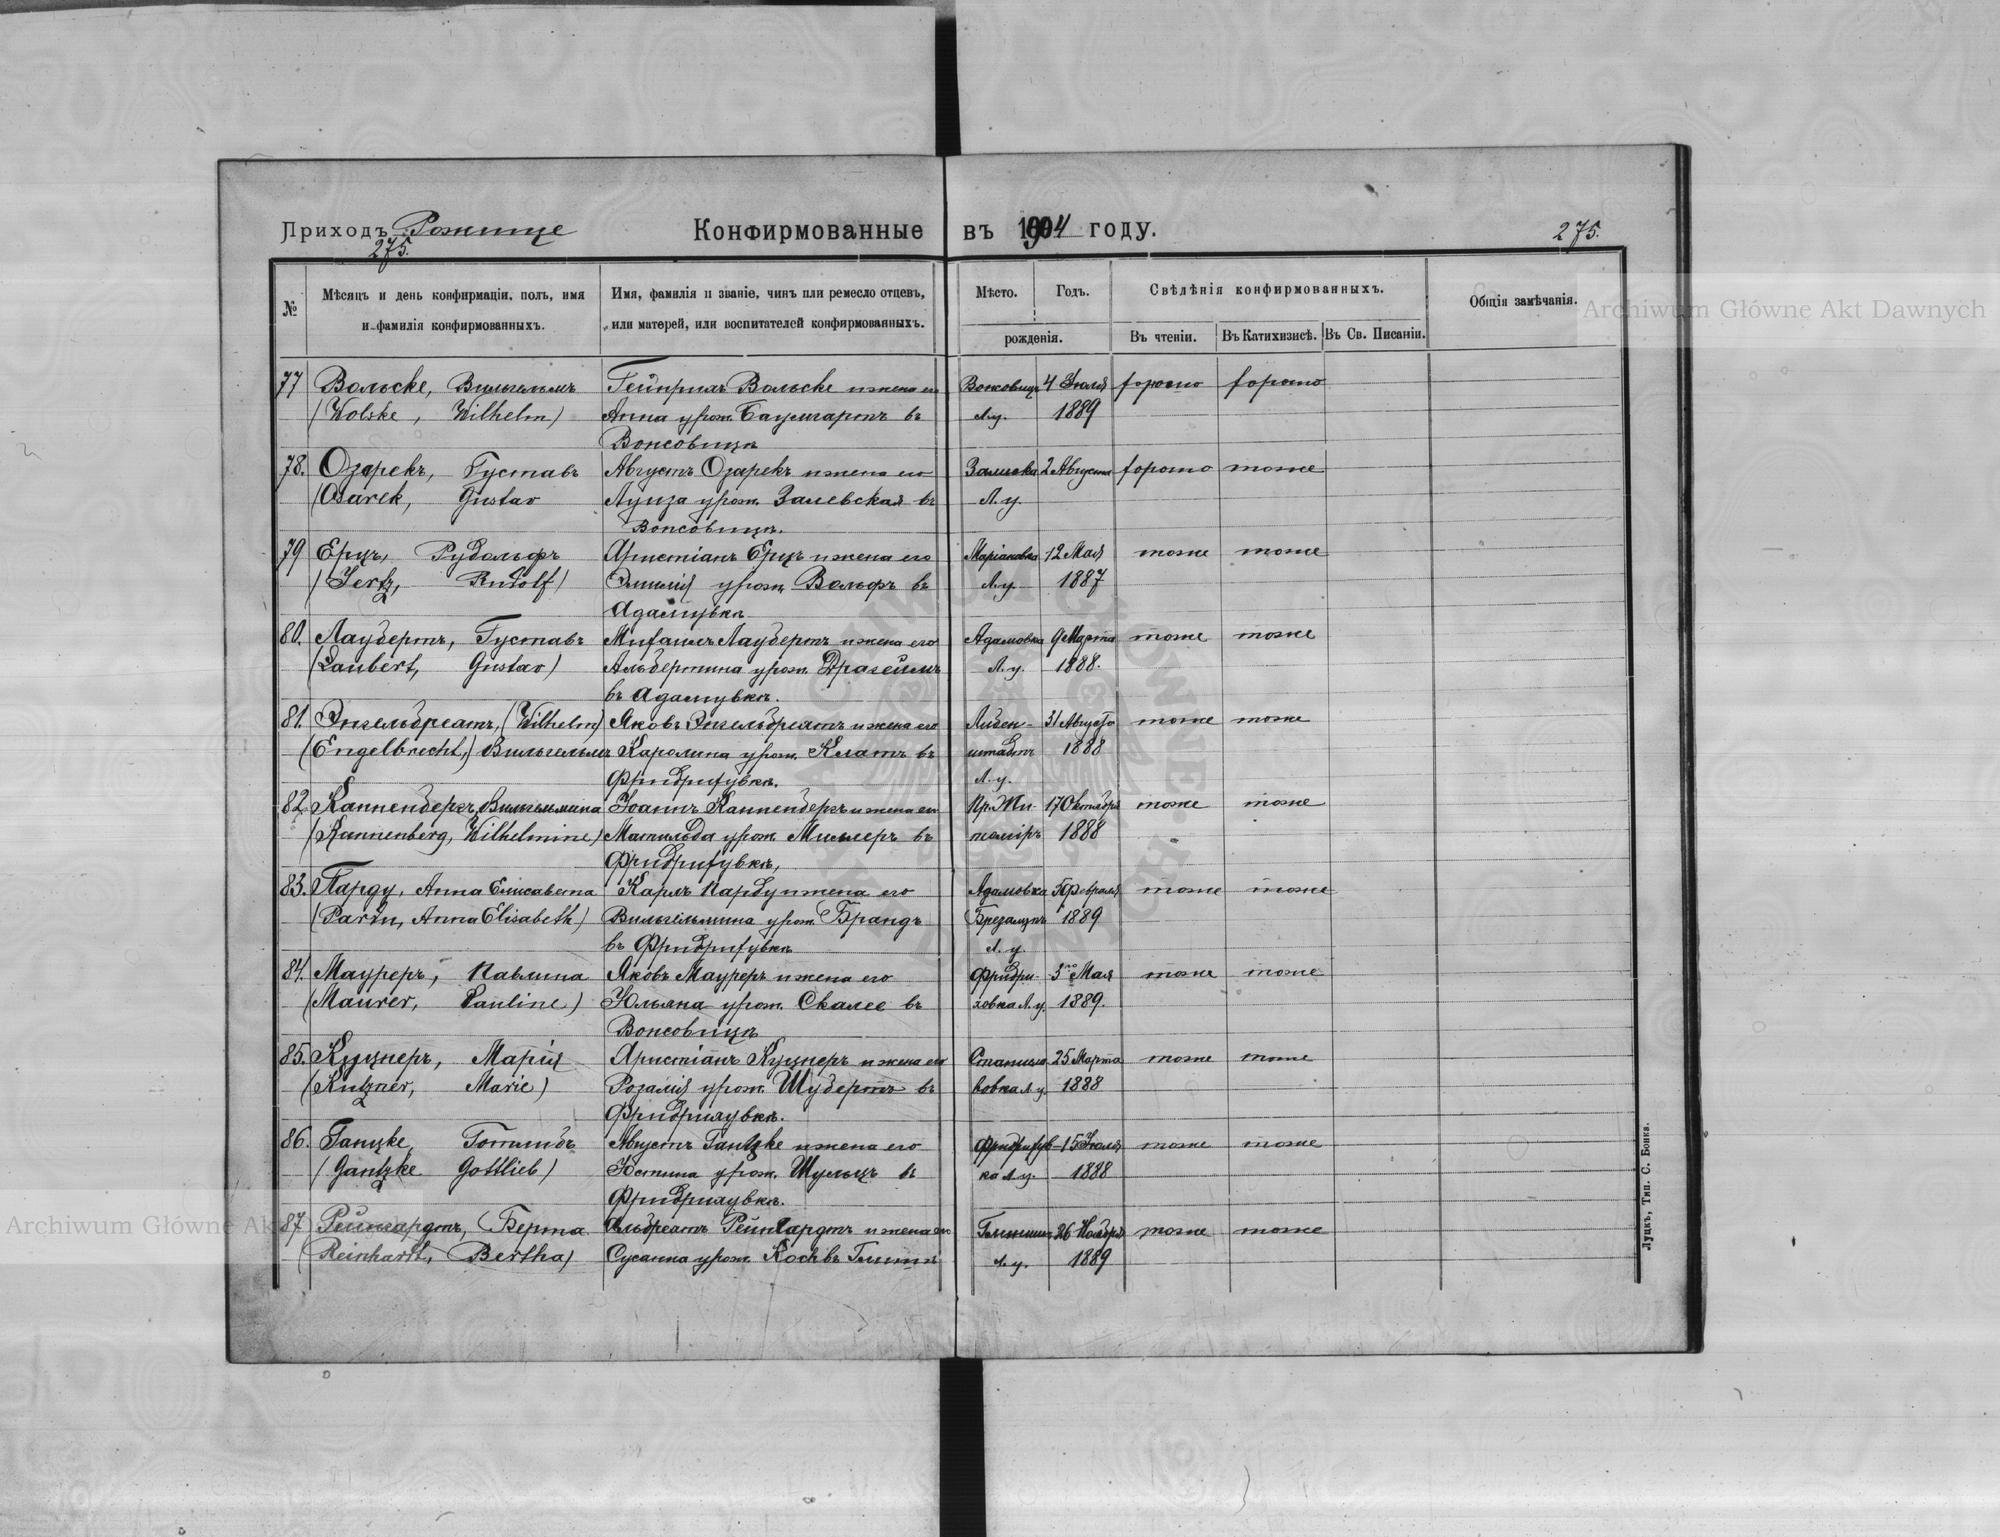 Приходъ Рожище Конфирмованные въ 1904 году. 275.
275.
№ Мѣсяцъ и день конфирмаціи, полъ, имя и фамилія конфирмованныхъ. Имя, фамилія и званіе, чинъ или ремесло отцевъ, или матерей, или воспитателей конфирмованныхъ. Мѣсто. Годъ. рожденія. Свѣдѣнія конфирмованныхъ. Въ чтеніи. Въ Катихизисѣ. Въ Св. Писаніи. Общія замѣчанія.
Archiwum Główne Akt Dawnych
77 Вольске, Вильгельмъ Гейнрихъ Вольске и жена его Воксовицъ 4 Іюля хорошо хорошо
(Wolske, Wilhelm) Анна урож. Баумгартъ въ Л.у. 1889
Воксовицѣ
78. Озарекъ, Густавъ Августъ Озарекъ и жена его 2 Августа хорошо тоже
(Osarek, Gustav Луиза урож. Залевская въ Л.у.
Воксовицѣ.
79 Ерцъ, Рудольфъ Христіанъ Ерцъ и жена его Маріановка 12 Мая тоже тоже
(Jertz, Rudolf) Эмилія урож. Вольфъ въ Л.у. 1887
Адамувкѣ
80. Лаубертъ, Густавъ Михаилъ Лаубертъ и жена его Адамовка 9 Марта тоже тоже
(Laubert, Gustav) Альбертина урож. Драгеймъ Л.у. 1888.
въ Адамувкѣ.
81. Энгельбрехтъ, (Wilhelm) Яковъ Энгельбрехтъ и жена его Либен- 31 Августа тоже тоже
(Engelbrecht,) Вильгельмъ Каролина урож. Клатъ въ штадтъ 1888
Фридрихувкѣ. Л.у.
82. Канненбергъ, Вильгельмина Іоаннъ Канненбергъ и жена его Жи- 17 Октября тоже тоже
(Kannenberg, Wilhelmine) Матильда урож. Миллеръ въ томіръ 1888
Фридрихувкѣ,
83. Парду, Анна Елисавета Карлъ Парду и жена его Адамовка 5 Февраля тоже тоже
(Pardu, Anna Elisabeth) Вильгельмина урож. Брандъ 1889
въ Фридрихувкѣ Л.у.
84. Мауреръ, Павлина Яковъ Мауреръ и жена его Фридри- 3го Мая тоже тоже
(Maurer, Pauline) Юльяна урож. Скалее въ ховка Л.у. 1889.
Воксовицѣ
85. Куцнеръ, Марія Христіанъ Куцнеръ и жена его Станисла 25 Марта тоже тоже
(Kutzner, Marie) Розалія урож. Шубертъ въ вовка Л.у. 1888
Фридрихувкѣ.
86. Ганцке, Готлибъ Августъ Гantzke и жена его Фридрихув- 15 Іюля тоже тоже
(Gantzke Gottlieb) Юстина урож. Шульцъ въ ка Л.у. 1888
Фридрихувкѣ.
87 Рейнгардтъ, Берта Альбрехтъ Рейнгардтъ и жена его 26 Ноября тоже тоже
(Reinhardt, Bertha) Сусанна урож. Кохъ въ Л.у. 1889
Archiwum Główne Akt
Луцкъ, Тип. С. Бонка.